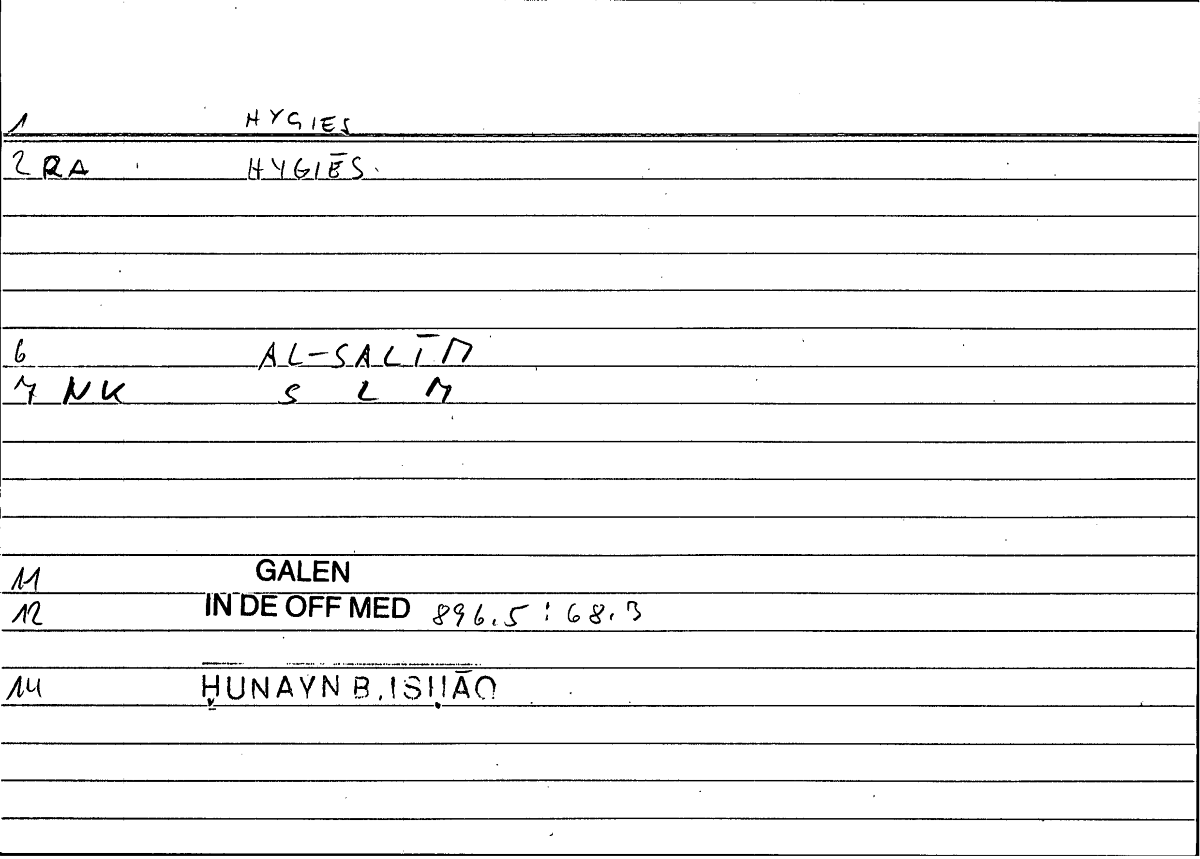 1 HYGIES
2 RA HYGIĒS.
6 AL-SALĪM
7 NK S L M
11 GALEN
12 IN DE OFF MED 896.5 : 68.3
14 ḤUNAYN B. ISḤĀQ